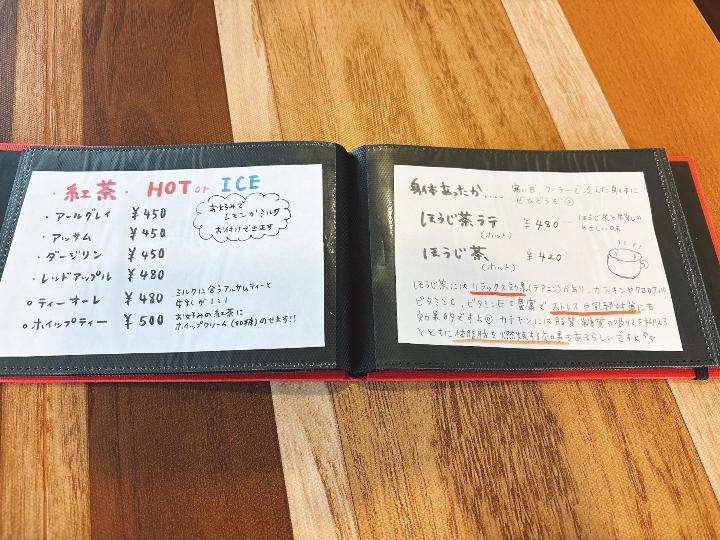 ・紅茶・ HOT or ICE
・アールグレイ ¥450
・アッサム ¥450
・ダージリン ¥450
・レッドアップル ¥480
○ティーオーレ ¥480 ミルクに合うアッサムティーと
牛乳が1:1
○ホイップティー ¥500 お好みの紅茶に
ホイップクリーム(加糖)のせます!!
お好みで
レモンかミルク
お付けできます
身体あったか....
寒い日、クーラーで冷えた身体に
ぜひどうぞ
ほうじ茶ラテ ¥480 ほうじ茶と牛乳の
(ホット) やさしい味
ほうじ茶 ¥420
(ホット)
ほうじ茶にはリラックス効果(テアニン)があり、カテキンやクロロフィル
ビタミンC、ビタミンEと豊富でストレスや風邪対策にも
効果的ですよ カテキンには脂質、糖質の吸収を抑える
とともに体脂肪を燃焼する効果もあるらしいですよ